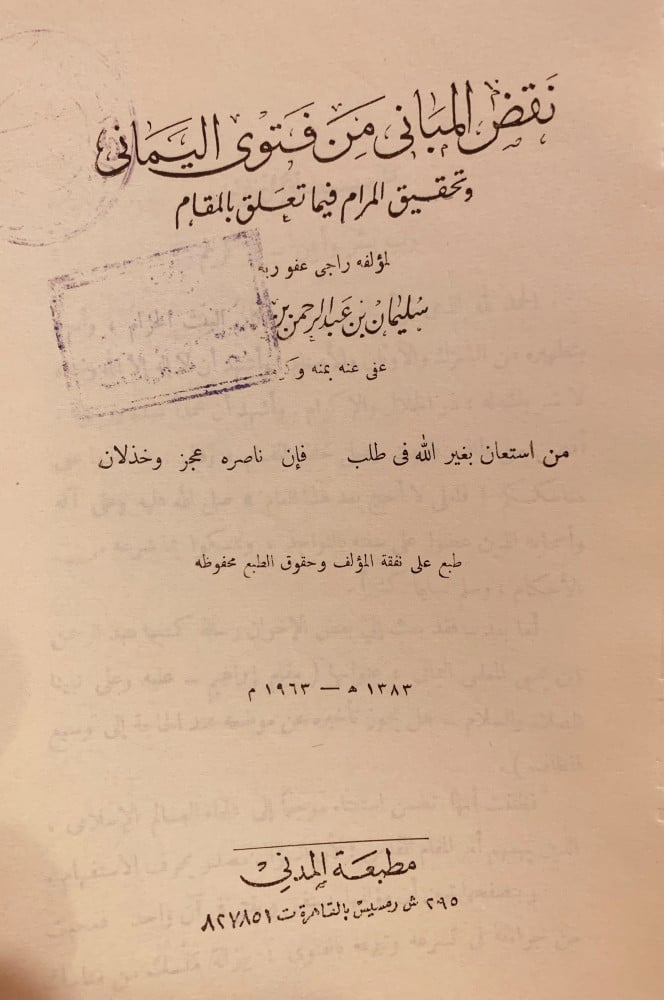 نقض المباني من فتوى اليماني
وتحقيق المرام فيما تعلق بالمقام
لمؤلفه راجى عفو ربه
سليمان بن عبد الرحمن بن
عفى عنه بمنه
من استعان بغير الله فى طلب فإن ناصره عجز وخذلان
طبع على نفقة المؤلف وحقوق الطبع محفوظه
١٣٨٣ هـ — ١٩٦٣ م
مطبعة المدني
٢٩٥ ش رمسيس بالقاهرة ت ٨٢٧٨٥١